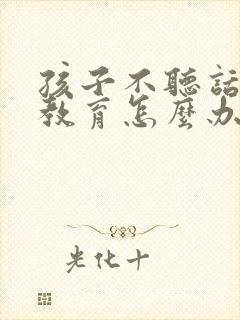 孩子不聽話
教育怎麼办
光化十